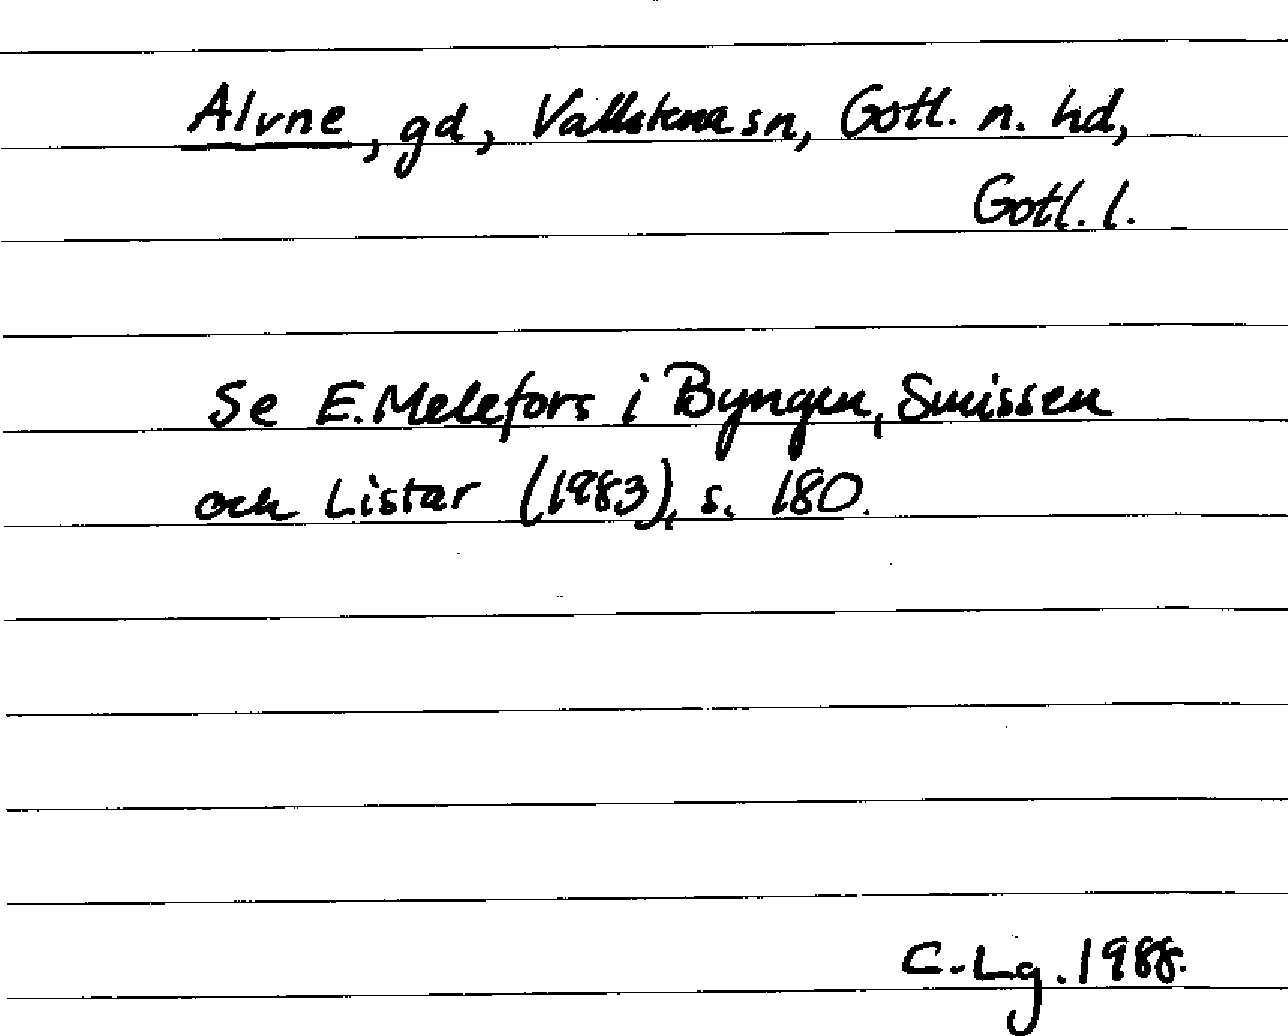 Alvne, gd, Vallstena sn, Gotl. n. hd,
Gotl. l.
Se E. Melefors i Byngen, Smissen
och Listar (1983), s. 180.
C. Lg. 1988.